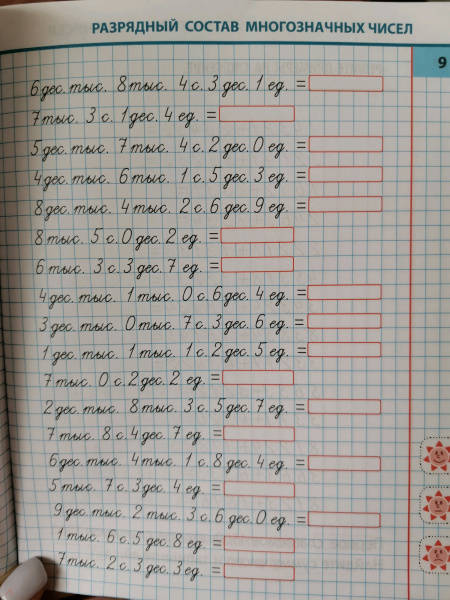 РАЗРЯДНЫЙ СОСТАВ МНОГОЗНАЧНЫХ ЧИСЕЛ
9
6 дес. тыс. 8 тыс. 4 с. 3 дес. 1 ед. =
7 тыс. 3 с. 1 дес. 4 ед. =
5 дес. тыс. 7 тыс. 4 с. 2 дес. 0 ед. =
4 дес. тыс. 6 тыс. 1 с. 5 дес. 3 ед. =
8 дес. тыс. 4 тыс. 2 с. 6 дес. 9 ед. =
8 тыс. 5 с. 0 дес. 2 ед. =
6 тыс. 3 с. 3 дес. 7 ед. =
4 дес. тыс. 1 тыс. 0 с. 6 дес. 4 ед. =
3 дес. тыс. 0 тыс. 7 с. 3 дес. 6 ед. =
1 дес. тыс. 1 тыс. 1 с. 2 дес. 5 ед. =
7 тыс. 0 с. 2 дес. 2 ед. =
2 дес. тыс. 8 тыс. 3 с. 5 дес. 7 ед. =
7 тыс. 8 с. 4 дес. 7 ед. =
6 дес. тыс. 4 тыс. 1 с. 8 дес. 4 ед. =
5 тыс. 7 с. 3 дес. 4 ед. =
9 дес. тыс. 2 тыс. 3 с. 6 дес. 0 ед. =
1 тыс. 6 с. 5 дес. 8 ед. =
7 тыс. 2 с. 3 дес. 3 ед. =